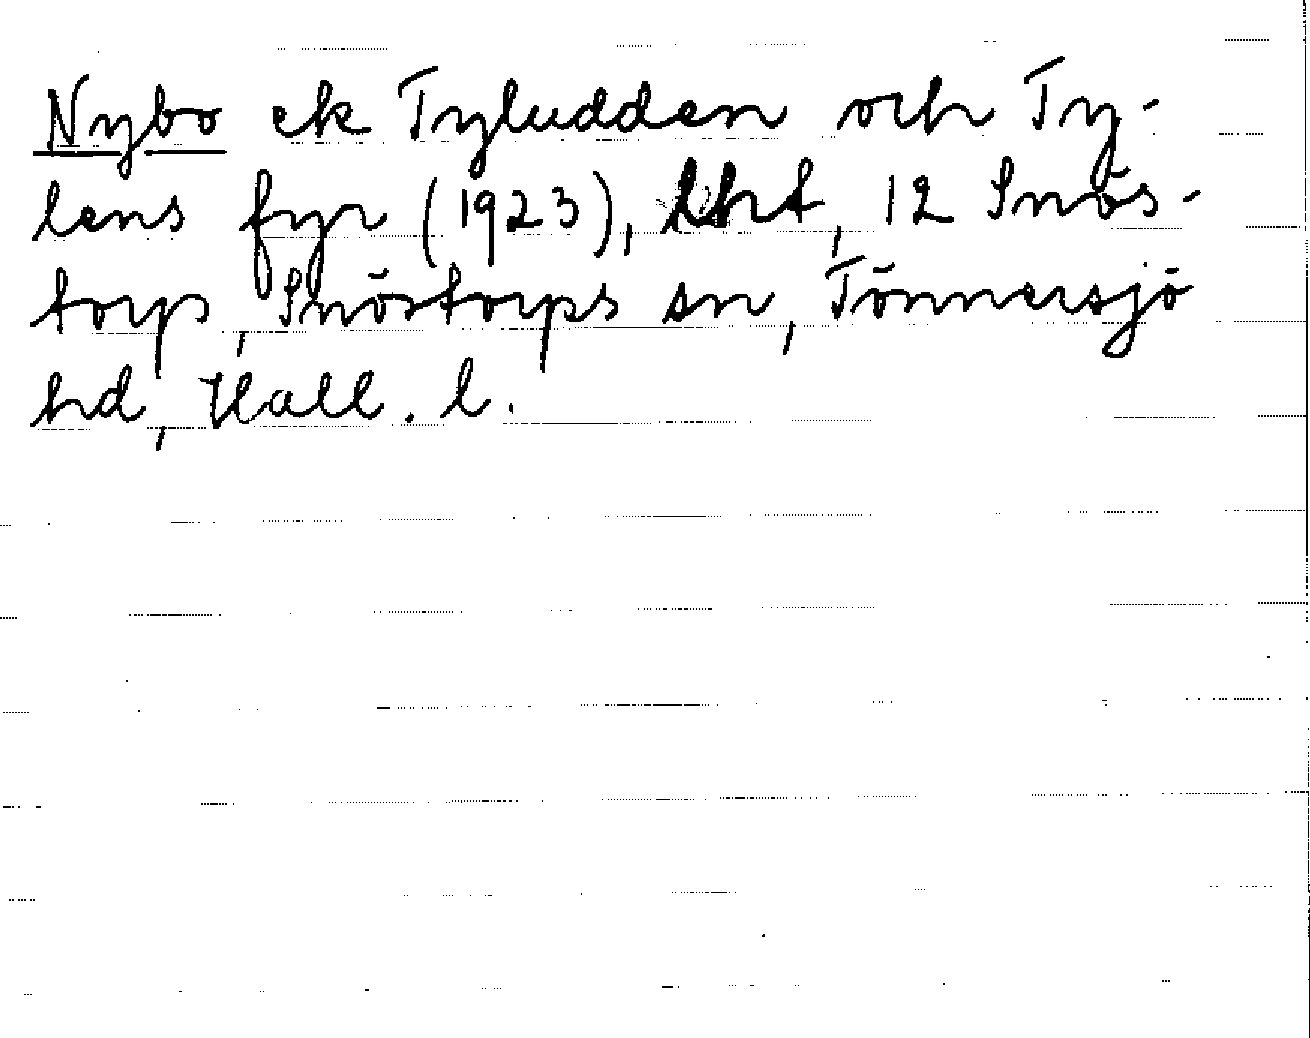 Nybo ek Tyludden och Ty-
lens fyr (1923), lht, 12 Snös-
torp, Snöstorps sn, Tönnersjö
hd, Hall. l.